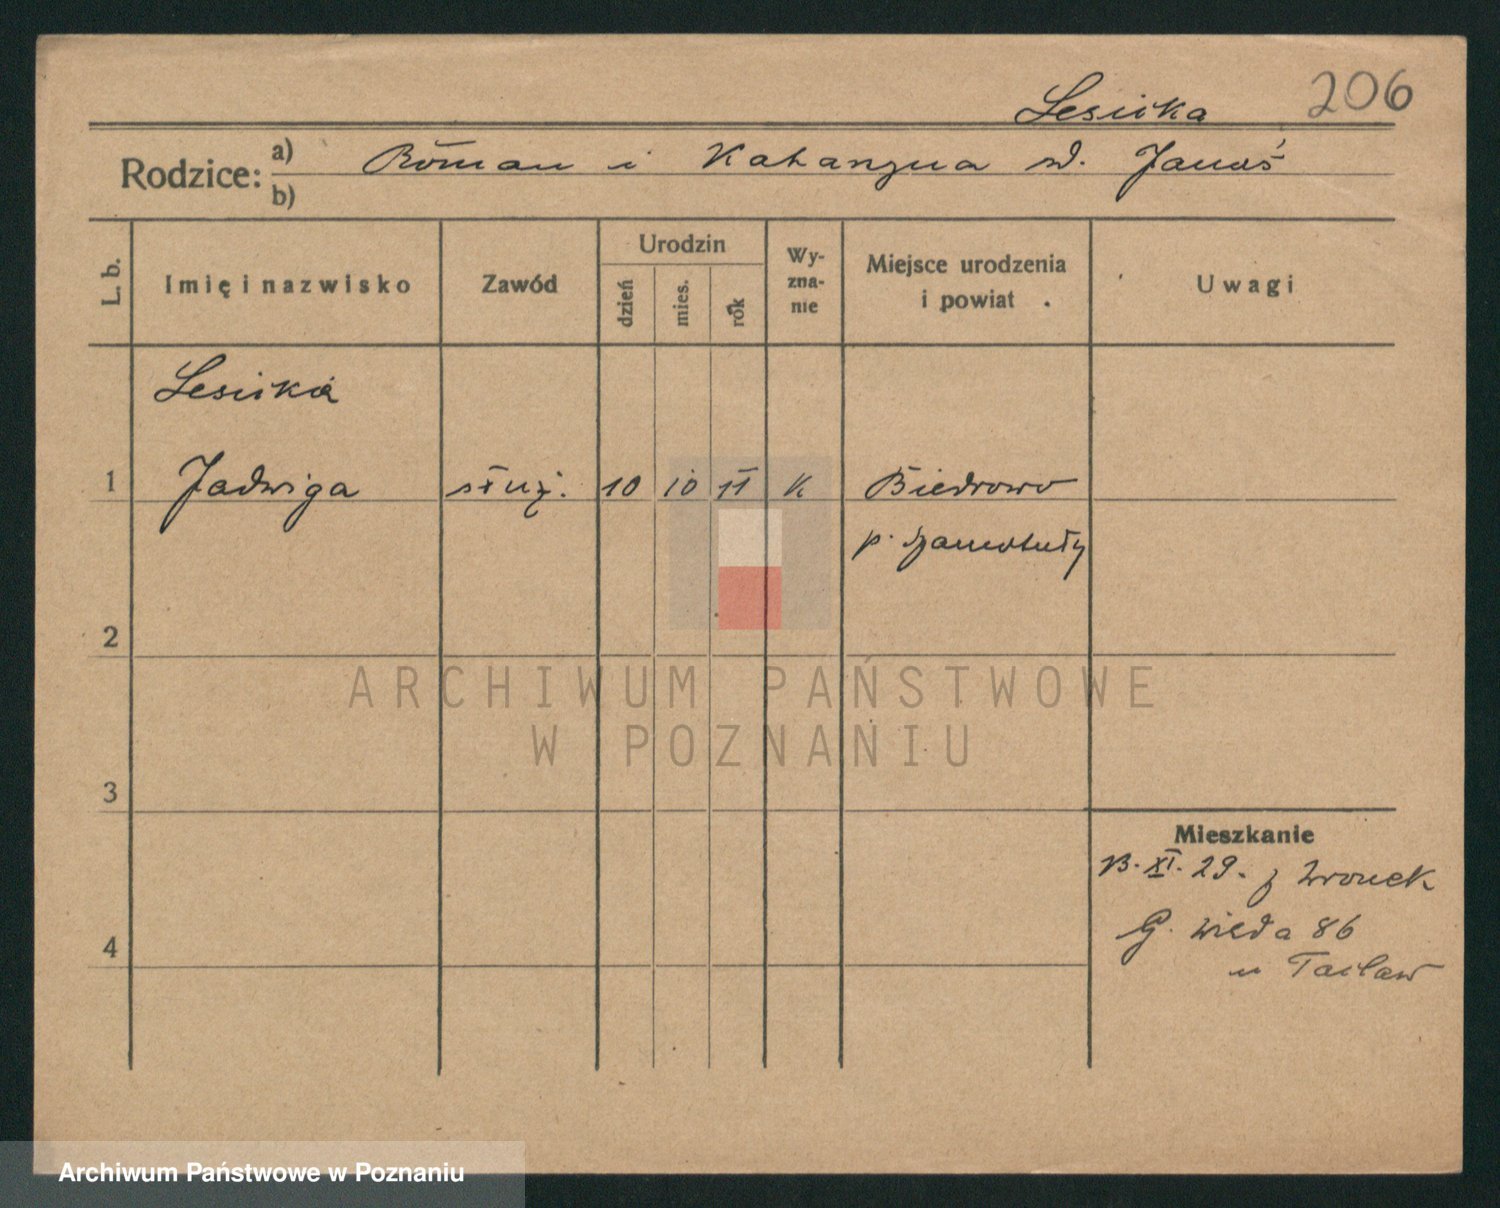 Lesicka 206
Rodzice: a) Roman i Katarzyna z d. Januś
b)
L. b. Imię i nazwisko Zawód Urodzin dzień mies. rok Wy-zna-nie Miejsce urodzenia i powiat Uwagi
Lesicka
1 Jadwiga służ. 10 10 11 k Biedrowo
p. Szamotuły
2
ARCHIWUM PAŃSTWOWE
W POZNANIU
3
Mieszkanie
13. XI. 29. z Wronek
4 G. Wilda 86
u
Archiwum Państwowe w Poznaniu